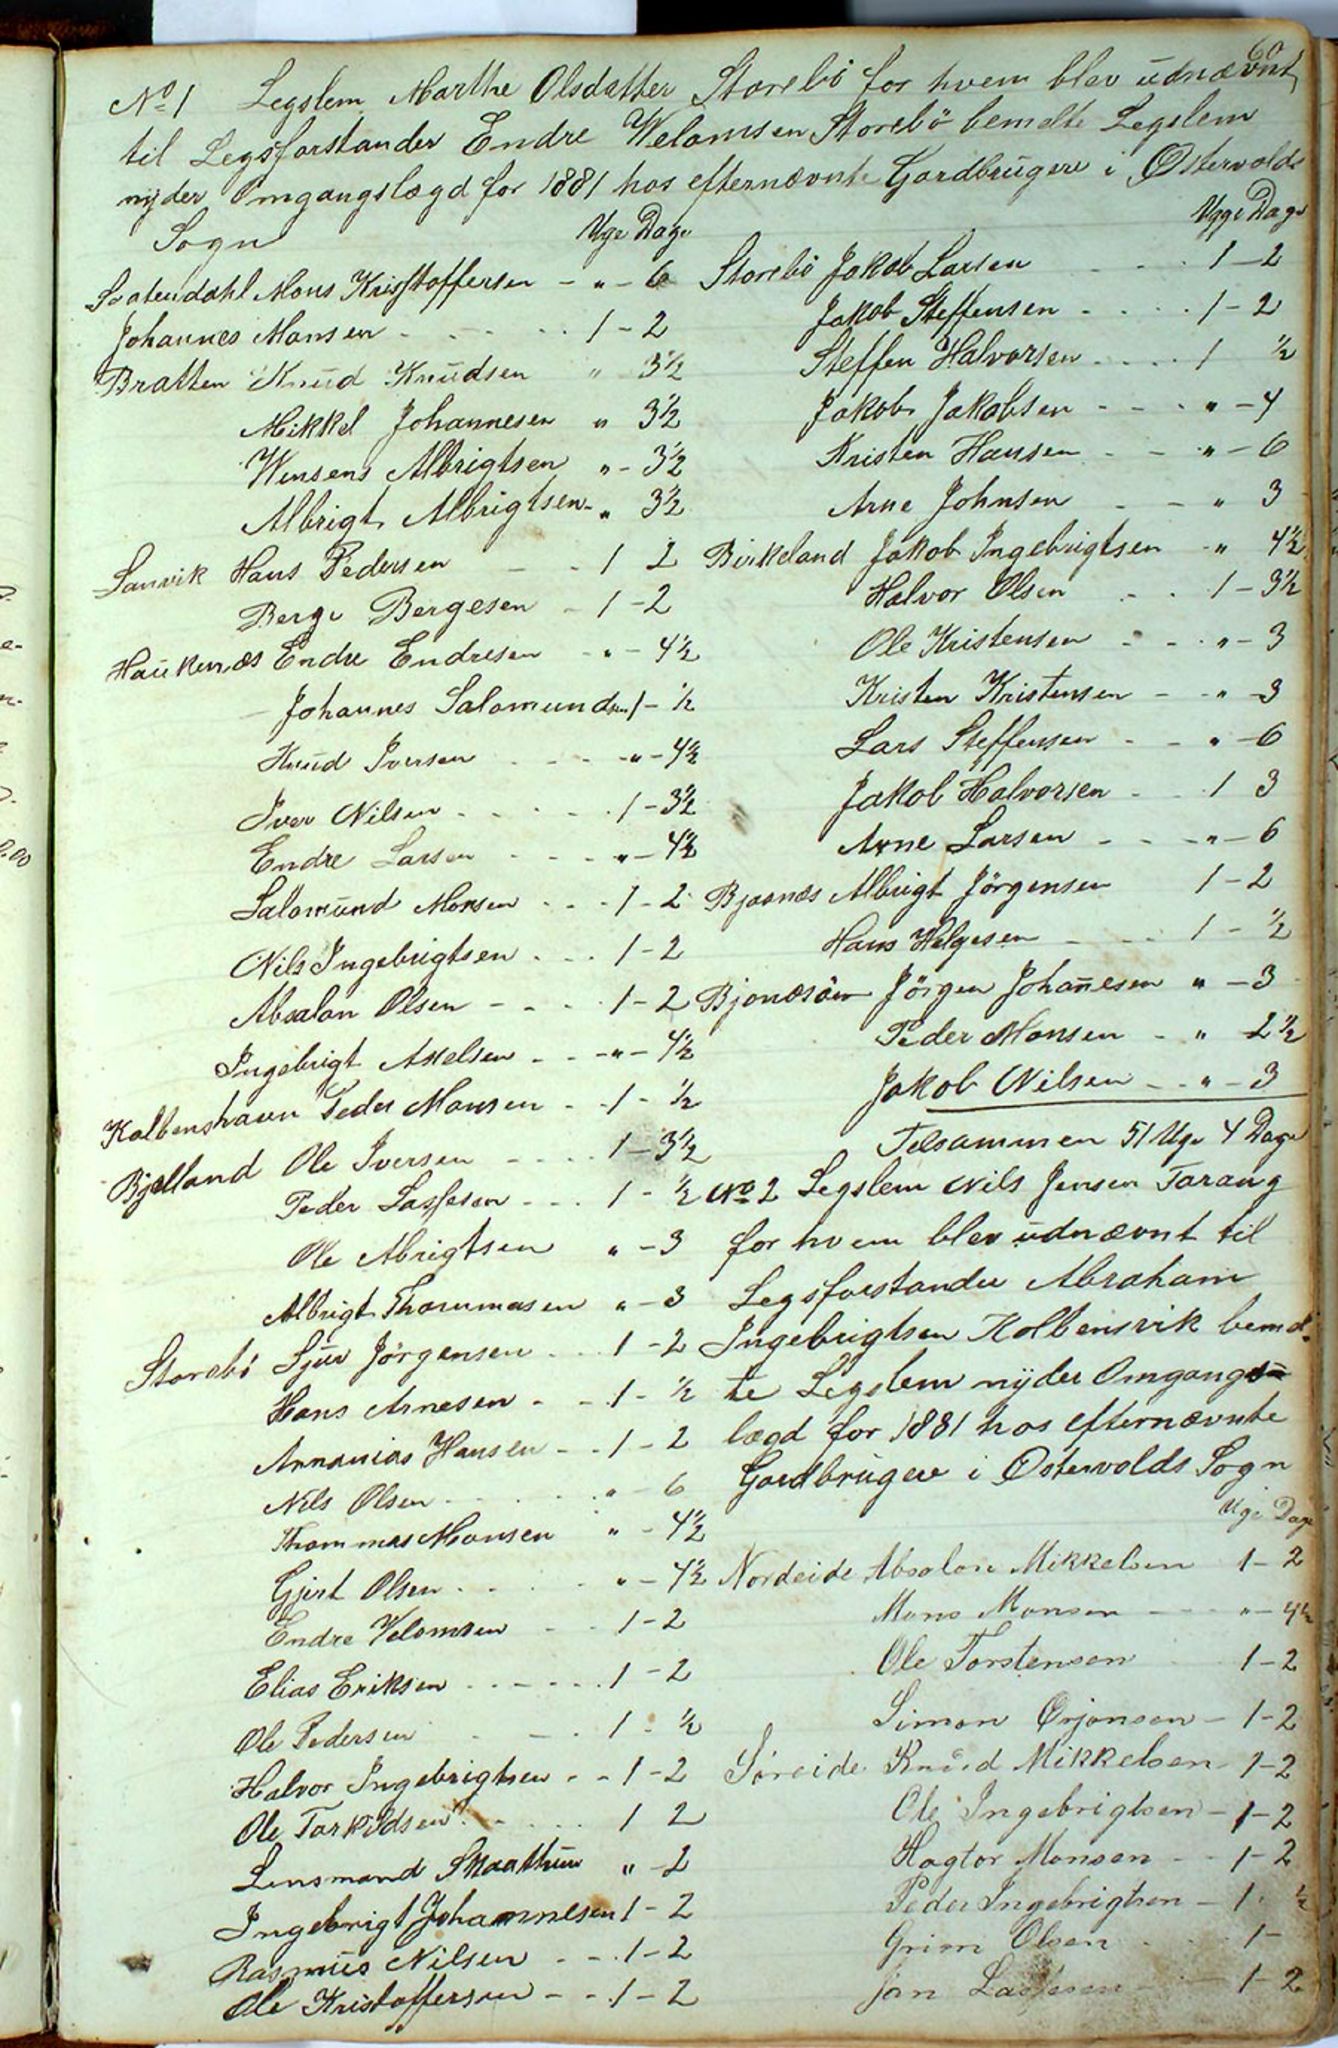 60
No 1 Legslem Marthe Olsdatter Storebö for hvem blev udnævnt
til Legsforstander Endre Welomsen Storebö bemelte Legslem
nyder Omgangslægd for 1881 hos efternævnte Gardbrugere i Østervolds
Sogn
Uge Dage
Svatendahl Mons Kristoffersen - " - 6
Johannes Monsen - 1 - 2
Bratten Knud Knudsen " 3½
Mikkel Johannesen " 3½
Winsens Albrigtsen " - 3½
Albrigt Albrigtsen - " 3½
Sanvik Hans Pedersen - 1 2
Berge Bergesen - 1 - 2
Haukenæs Endre Endresen - " - 4½
- Johannes Salomundsen 1 - ½
Knud Iversen - " - 4½
Iver Nilsen - 1 - 3½
Endre Larsen - " - 4½
Salomund Monsen - 1 - 2
Nils Ingebrigtsen - 1 - 2
Absalon Olsen - 1 - 2
Ingebrigt Axelsen - " - 4½
Kolbenshavn Peder Monsen - 1 - ½
Bjelland Ole Iversen - 1 - 3½
Peder Lassesen - 1 - ½
Ole Abrigtsen " - 3
Albrigt Thommasen " - 3
Storebö Sjur Jörgensen - 1 - 2
Hans Arnesen - 1 - ½
Annanias Hansen - 1 - 2
Nils Olsen - " - 6
Thommas Monsen " - 4½
Gjert Olsen - " - 4½
Endre Velomsen - 1 - 2
Elias Eriksen - 1 - 2
Ole Pedersen - 1 - ½
Halvor Ingebrigtsen - 1 - 2
Ole Torkildsen - 1 2
Lensmand Skaathun " - 2
Ingebrigt Johannesen 1 - 2
Rasmus Nilsen - 1 - 2
Ole Kristoffersen - 1 - 2
Ugge Dage
Storebö Jakob Larsen - 1 - 2
Jakob Steffensen - 1 - 2
Steffen Halvorsen - 1 ½
Jakob Jakobsen - " - 4
Kristen Hansen - " - 6
Arne Johnsen - " 3
Birkeland Jakob Ingebrigtsen - " 4½
Halvor Olsen - 1 - 3½
Ole Kristensen - " - 3
Kristen Kristensen - " - 3
Lars Steffensen - " - 6
Jakob Halvorsen - 1 3
Arne Larsen - " - 6
Bjornes Albrigt Jörgensen 1 - 2
Hans Helgesen - 1 - ½
Jörgen Johannesen " - 3
Peder Monsen - " 2½
Jakob Nilsen - " - 3
Telsammen 51 Uge 4 Dage
No 2 Legslem Nils Jensen Tarang
for hvem blev udnævnt til
Legsforstander Abraham
Ingebrigtsen Kolbensvik bemel-
te Legslem nyder Omgangs=
lægd for 1881 hos efternævnte
Gardbrugere i Østervolds Sogn
Uge Dage
Nordeide Absalon Mikkelsen 1 - 2
Mons Monsen - " - 4½
Ole Torstensen 1 - 2
Simon Ørjansen - 1 - 2
Söreide Knud Mikkelsen - 1 - 2
Ole Ingebrigtsen - 1 - 2
Hagtor Monsen - 1 - 2
Peder Ingebrigtsen - 1 - ½
Grim Olsen - 1 -
Jon Lassesen - 1 - 2